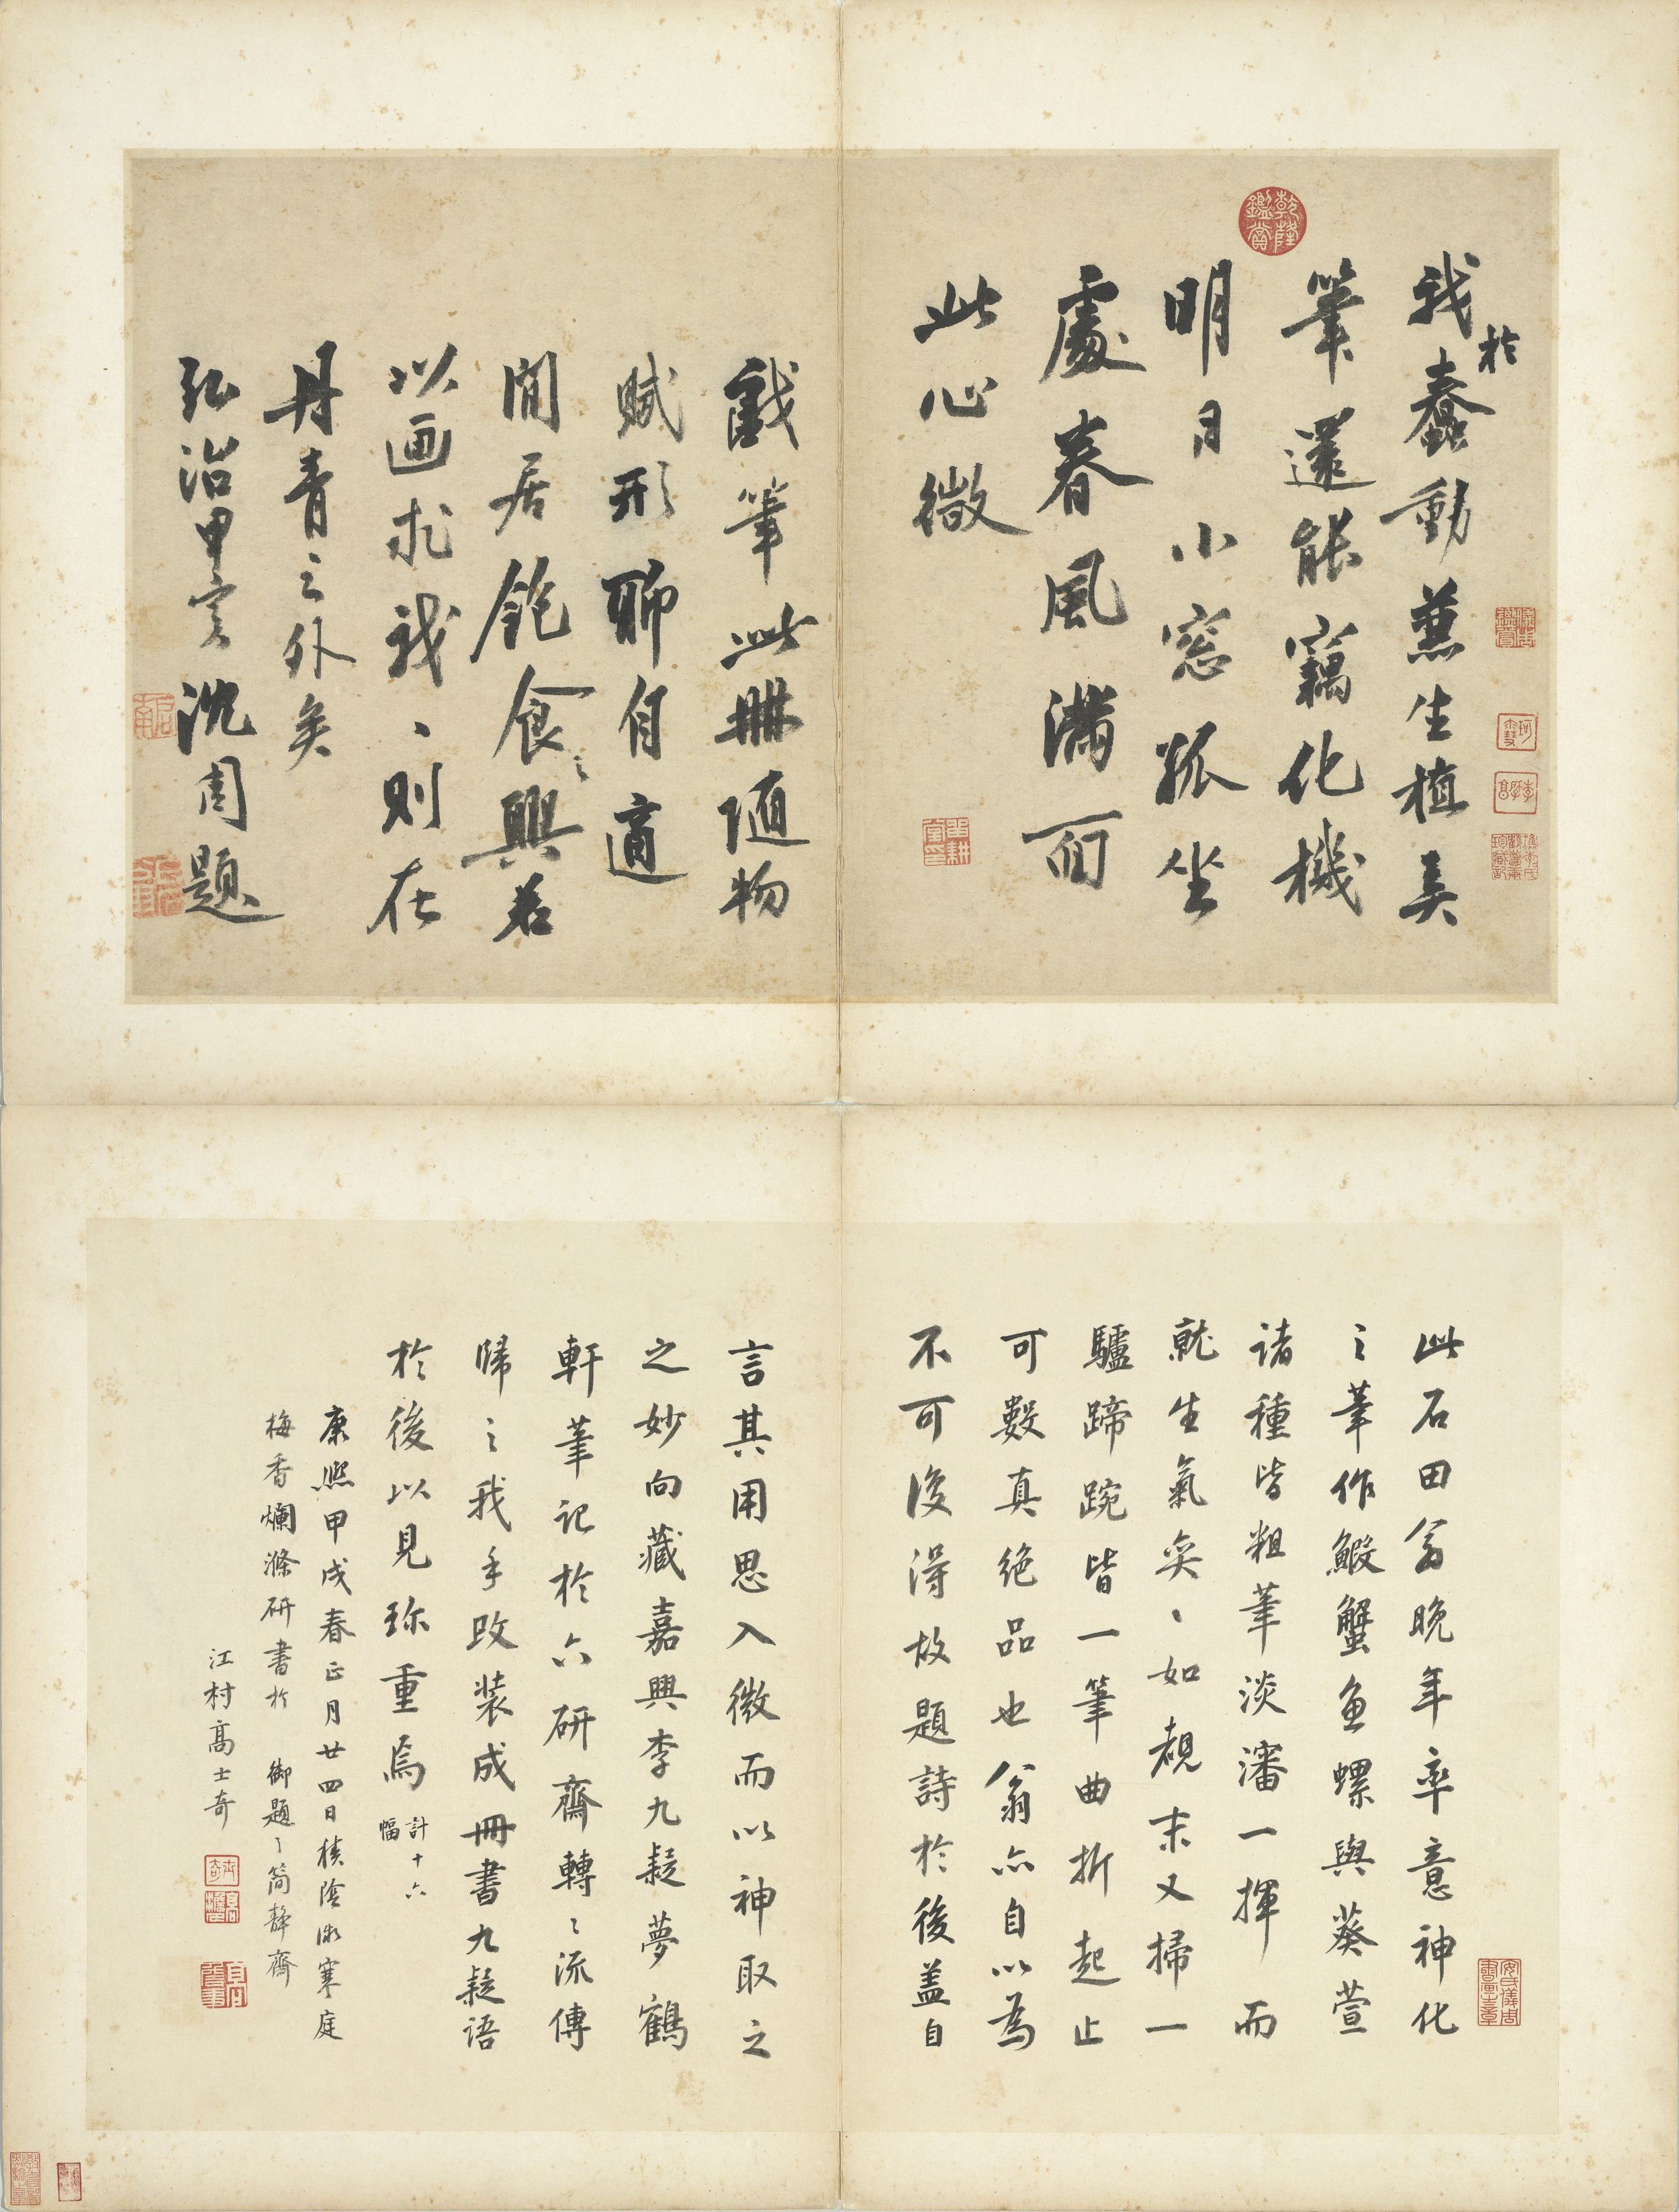 乾隆鑑賞
我於蠢動兼生植弄
筆還能竊化機
明月小窓孤坐
處春風滿面
此心微
戲筆此冊隨物
賦形聊自適
閒居飽食之興若
以画求我、則在
丹青之外矣
弘治甲寅沈周題
此石田翁晚年率意神化
之筆作鰕蟹魚螺與葵萱
諸種皆粗筆淡瀋一揮而
就生氣奕、如覩末又掃一
驢蹄踠皆一筆曲折起止
可數真絕品也翁亦自以為
不可復得故題詩於後盖自
言其用思入微而以神取之
之妙向藏嘉興李九疑夢鶴
軒筆記於六研齋轉〻流傳
歸之我手改裝成冊書九疑語
於後以見珎重焉計十六幅
康熙甲戌春正月廿四日積陰微寒庭
梅香爛滌研書於 御題之簡靜齋
江村高士奇
安氏儀周書畫之章